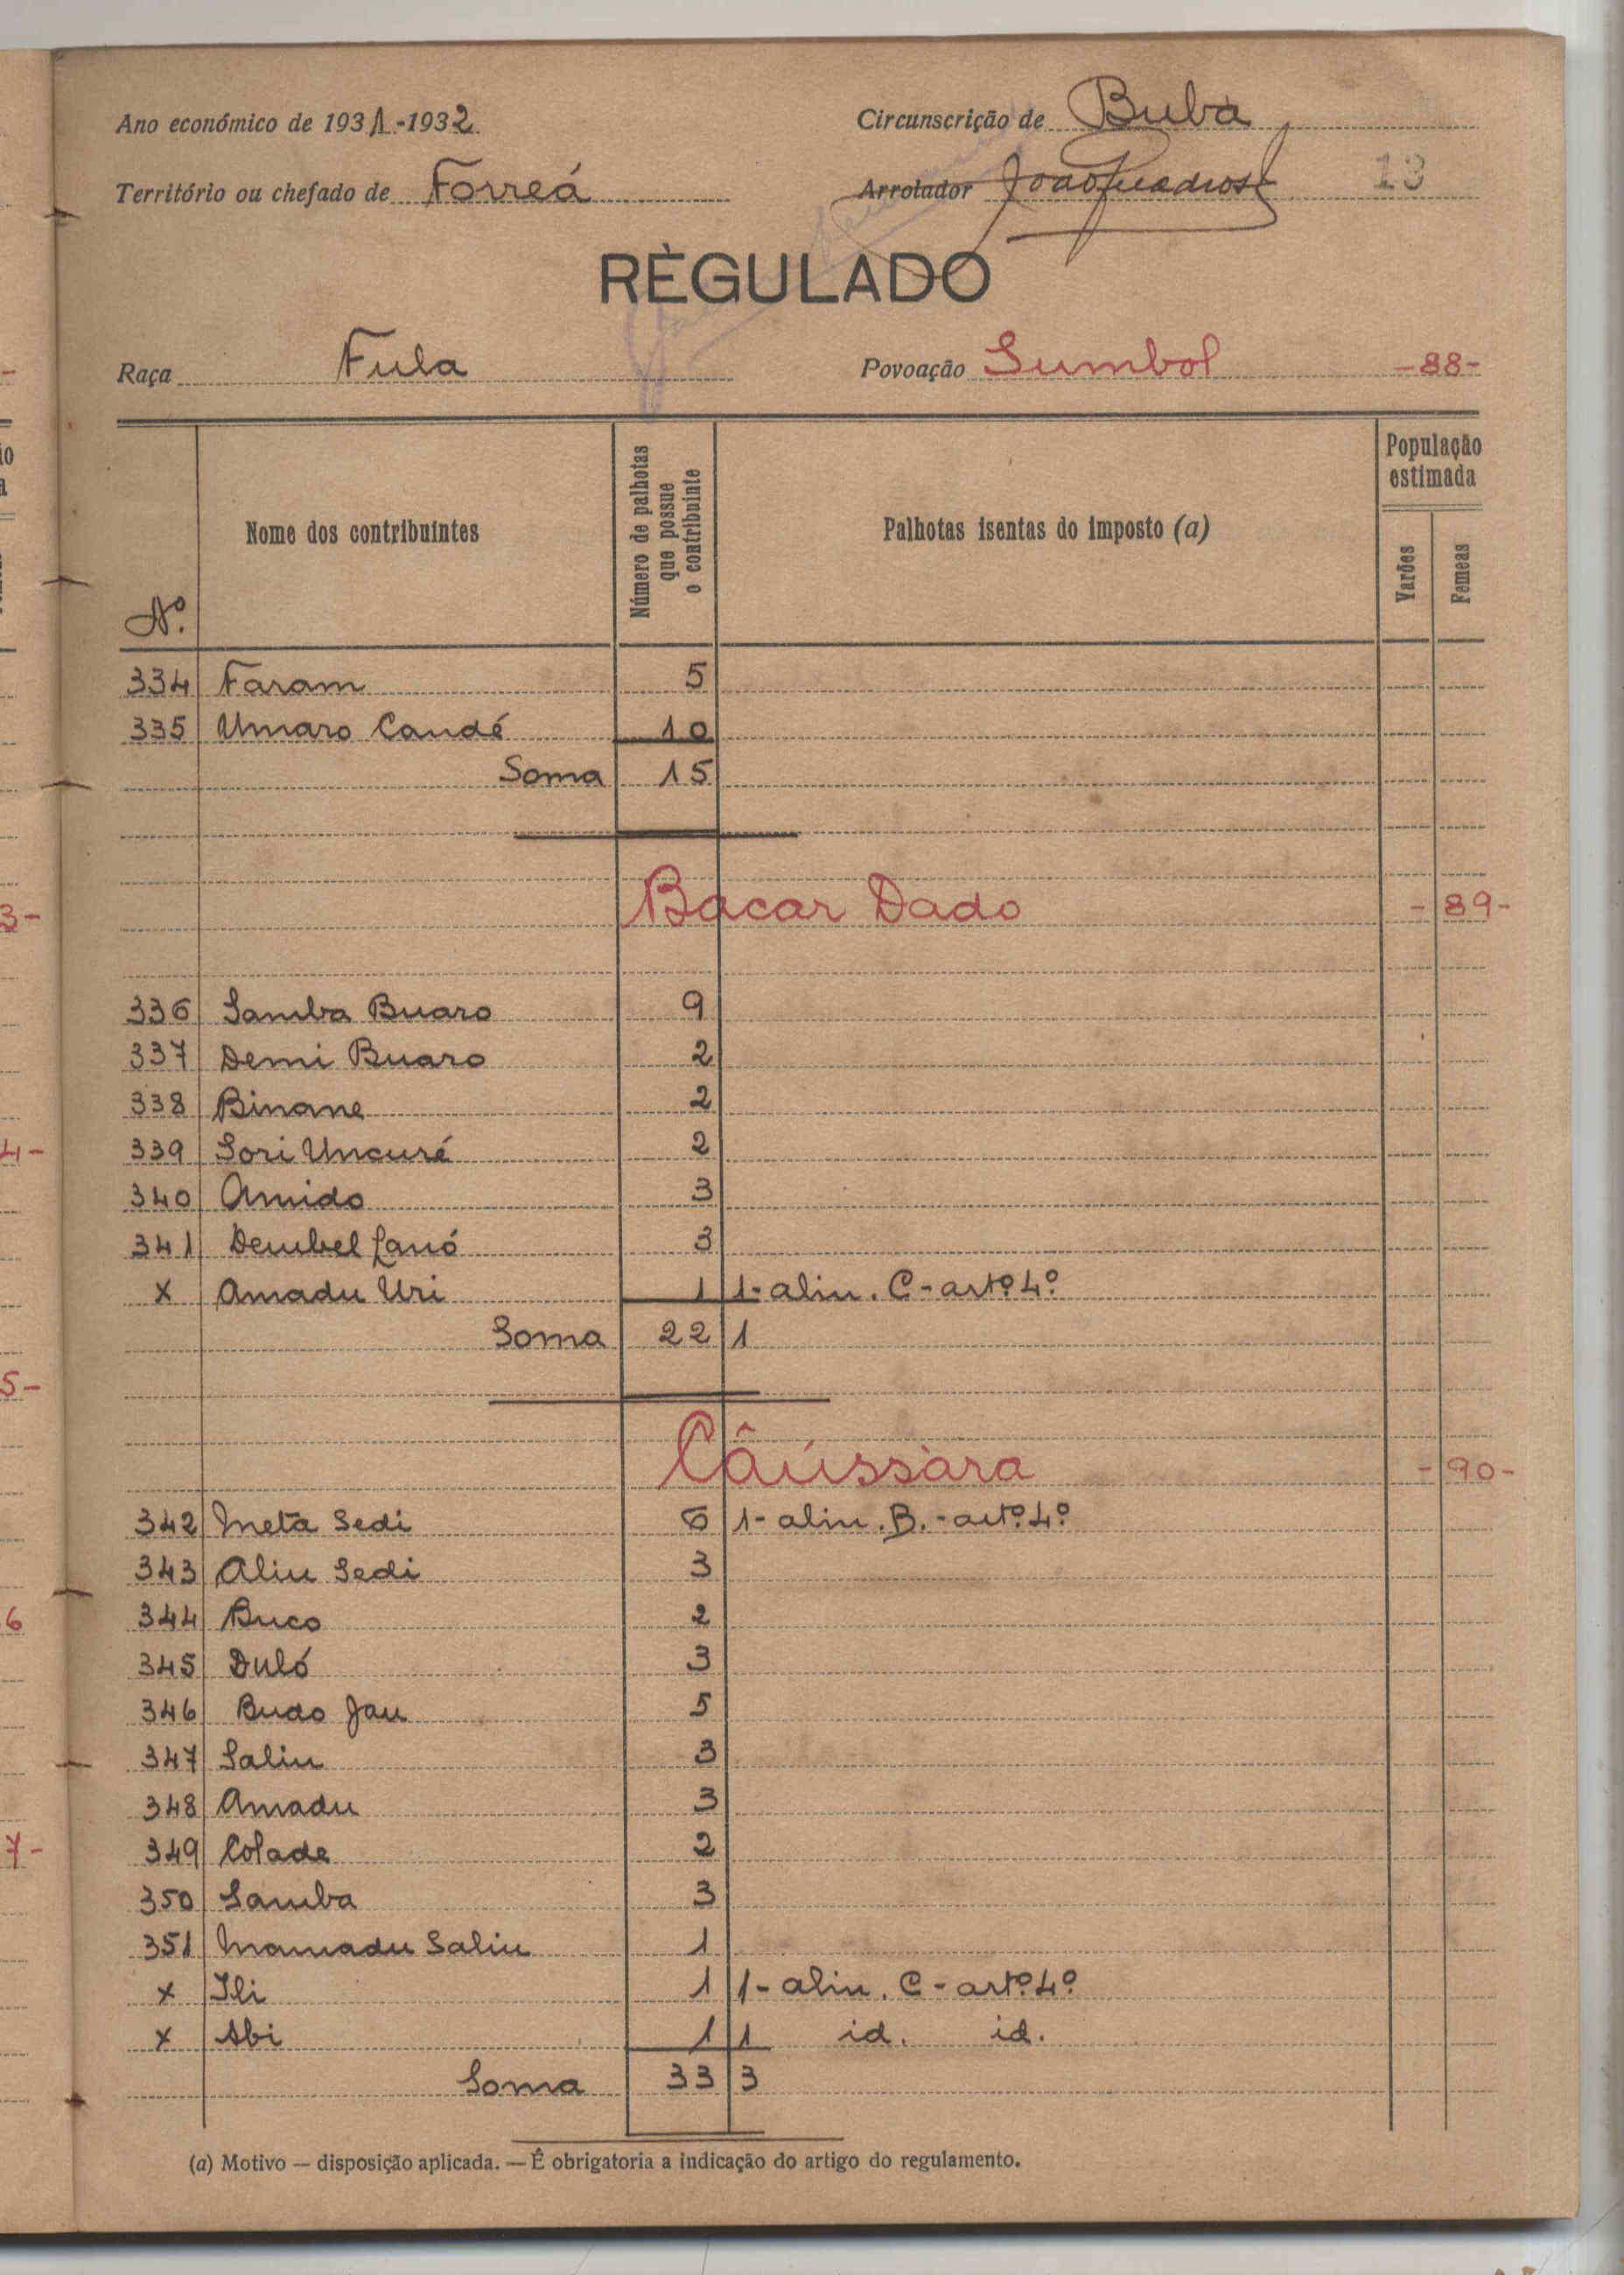 Ano económico de 1931-1932
Circunscrição de Buba
Território ou chefado de Forreá
Arrolador João Quadros 13
RÈGULADO
Raça Fula
Povoação Sumbol -88-
Nº
Nome dos contribuintes
Número de palhotas que possue o contribuinte
Palhotas isentas do imposto (a)
População estimada
Varões
Femeas
334 Faram 5
335 Umaro Candé 10
Soma 15
Bacar Dado -89-
336 Samba Buaro 9
337 Demi Buaro 2
338 Binane 2
339 Sori Uncuré 2
340 Amido 3
341 Dembel Canó 3
x Amadu Uri 1 1-alin. C-artº 4º
Soma 22 1
Câússàra -90-
342 Meta Sedi 6 1-alin. B.-artº 4º
343 Aliu Sedi 3
344 Buco 2
345 Duló 3
346 Budo Jau 5
347 Saliu 3
348 Amadu 3
349 Colade 2
350 Samba 3
351 Mamadu Saliu 1
x Ili 1 1-alin. C-artº 4º
x Abi 1 1 id. id.
Soma 33 3
(a) Motivo — disposição aplicada. — É obrigatoria a indicação do artigo do regulamento.
3-
4-
5-
6
7-